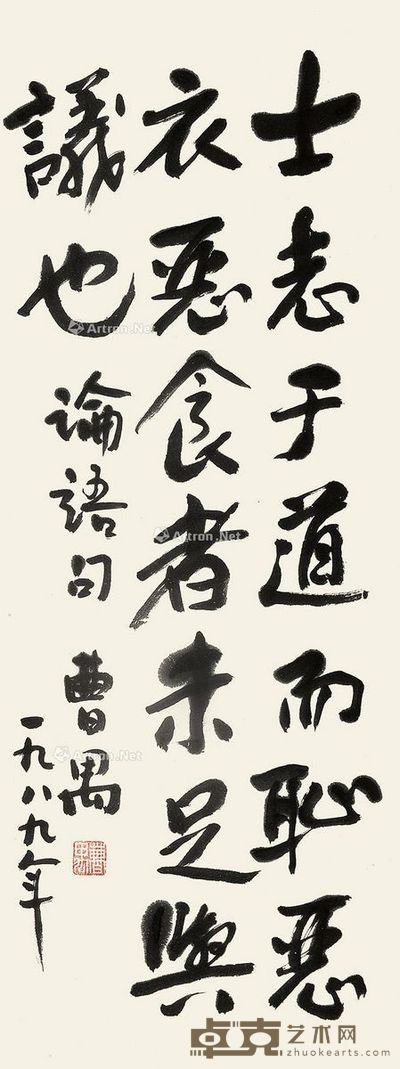 士志于道而恥惡
衣惡食者未足與
議也 論語句 曹禺
一九八九年
Artron.Net
Artron.Net
Artron.Net
卓克艺术网
zhuokearts.com